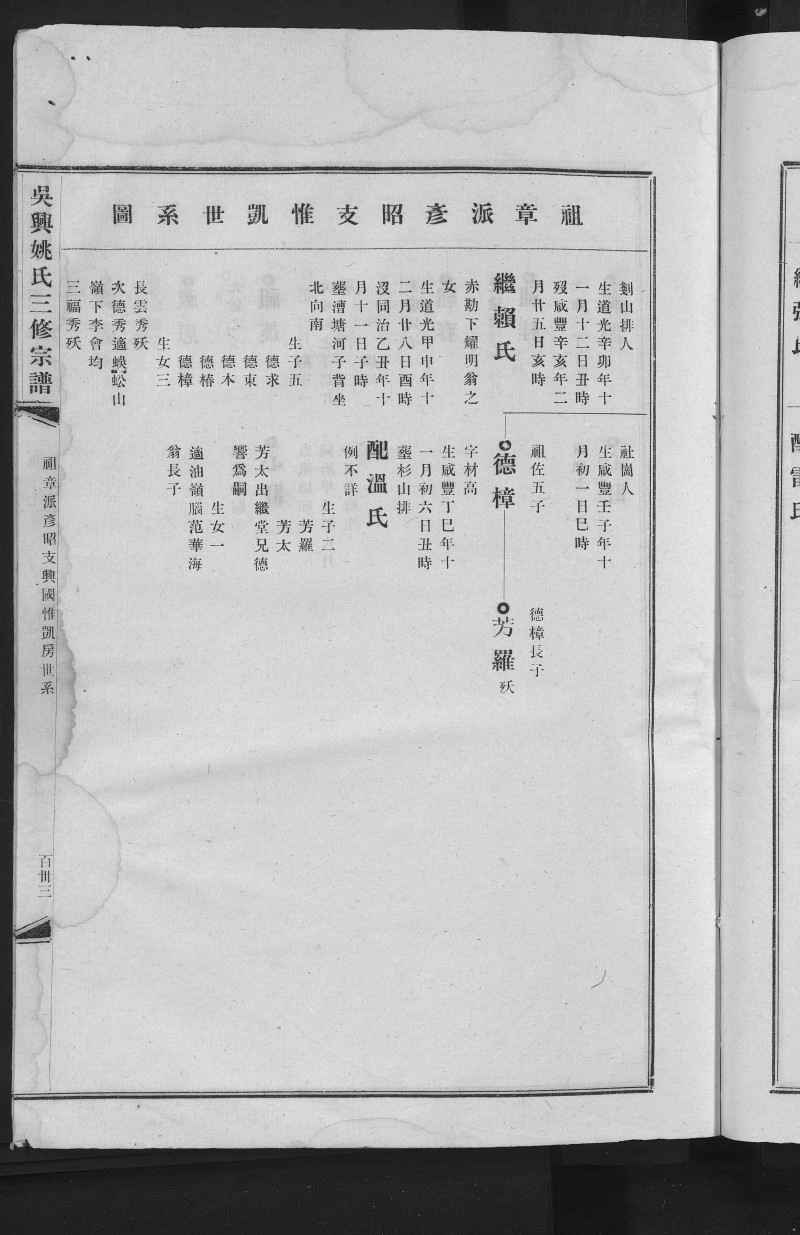 祖章派彥昭支惟凱世系圖
剗山排人
生道光辛卯年十
一月十二日丑時
歿咸豐辛亥年二
月廿五日亥時
繼賴氏
赤勘下耀明翁之
女
生道光甲申年十
二月廿八日酉時
沒同治乙丑年十
月十一日子時
塟漕塘河子背坐
北向南
生子五
德求
德東
德本
德椿
德樟
生女三
長雲秀殀
次德秀適蜈蚣山
嶺下李會均
三福秀殀
社崗人
生咸豐壬子年十
月初一日巳時
祖佐五子
德樟
字材高
生咸豐丁巳年十
一月初六日丑時
塟杉山排
配溫氏
例不詳
生子二
芳羅
芳太
芳太出繼堂兄德
響為嗣
生女一
適油嶺腦范華海
翁長子
德樟長子
芳羅殀
吳興姚氏三修宗譜
祖章派彥昭支興國惟凱房世系
百卅三